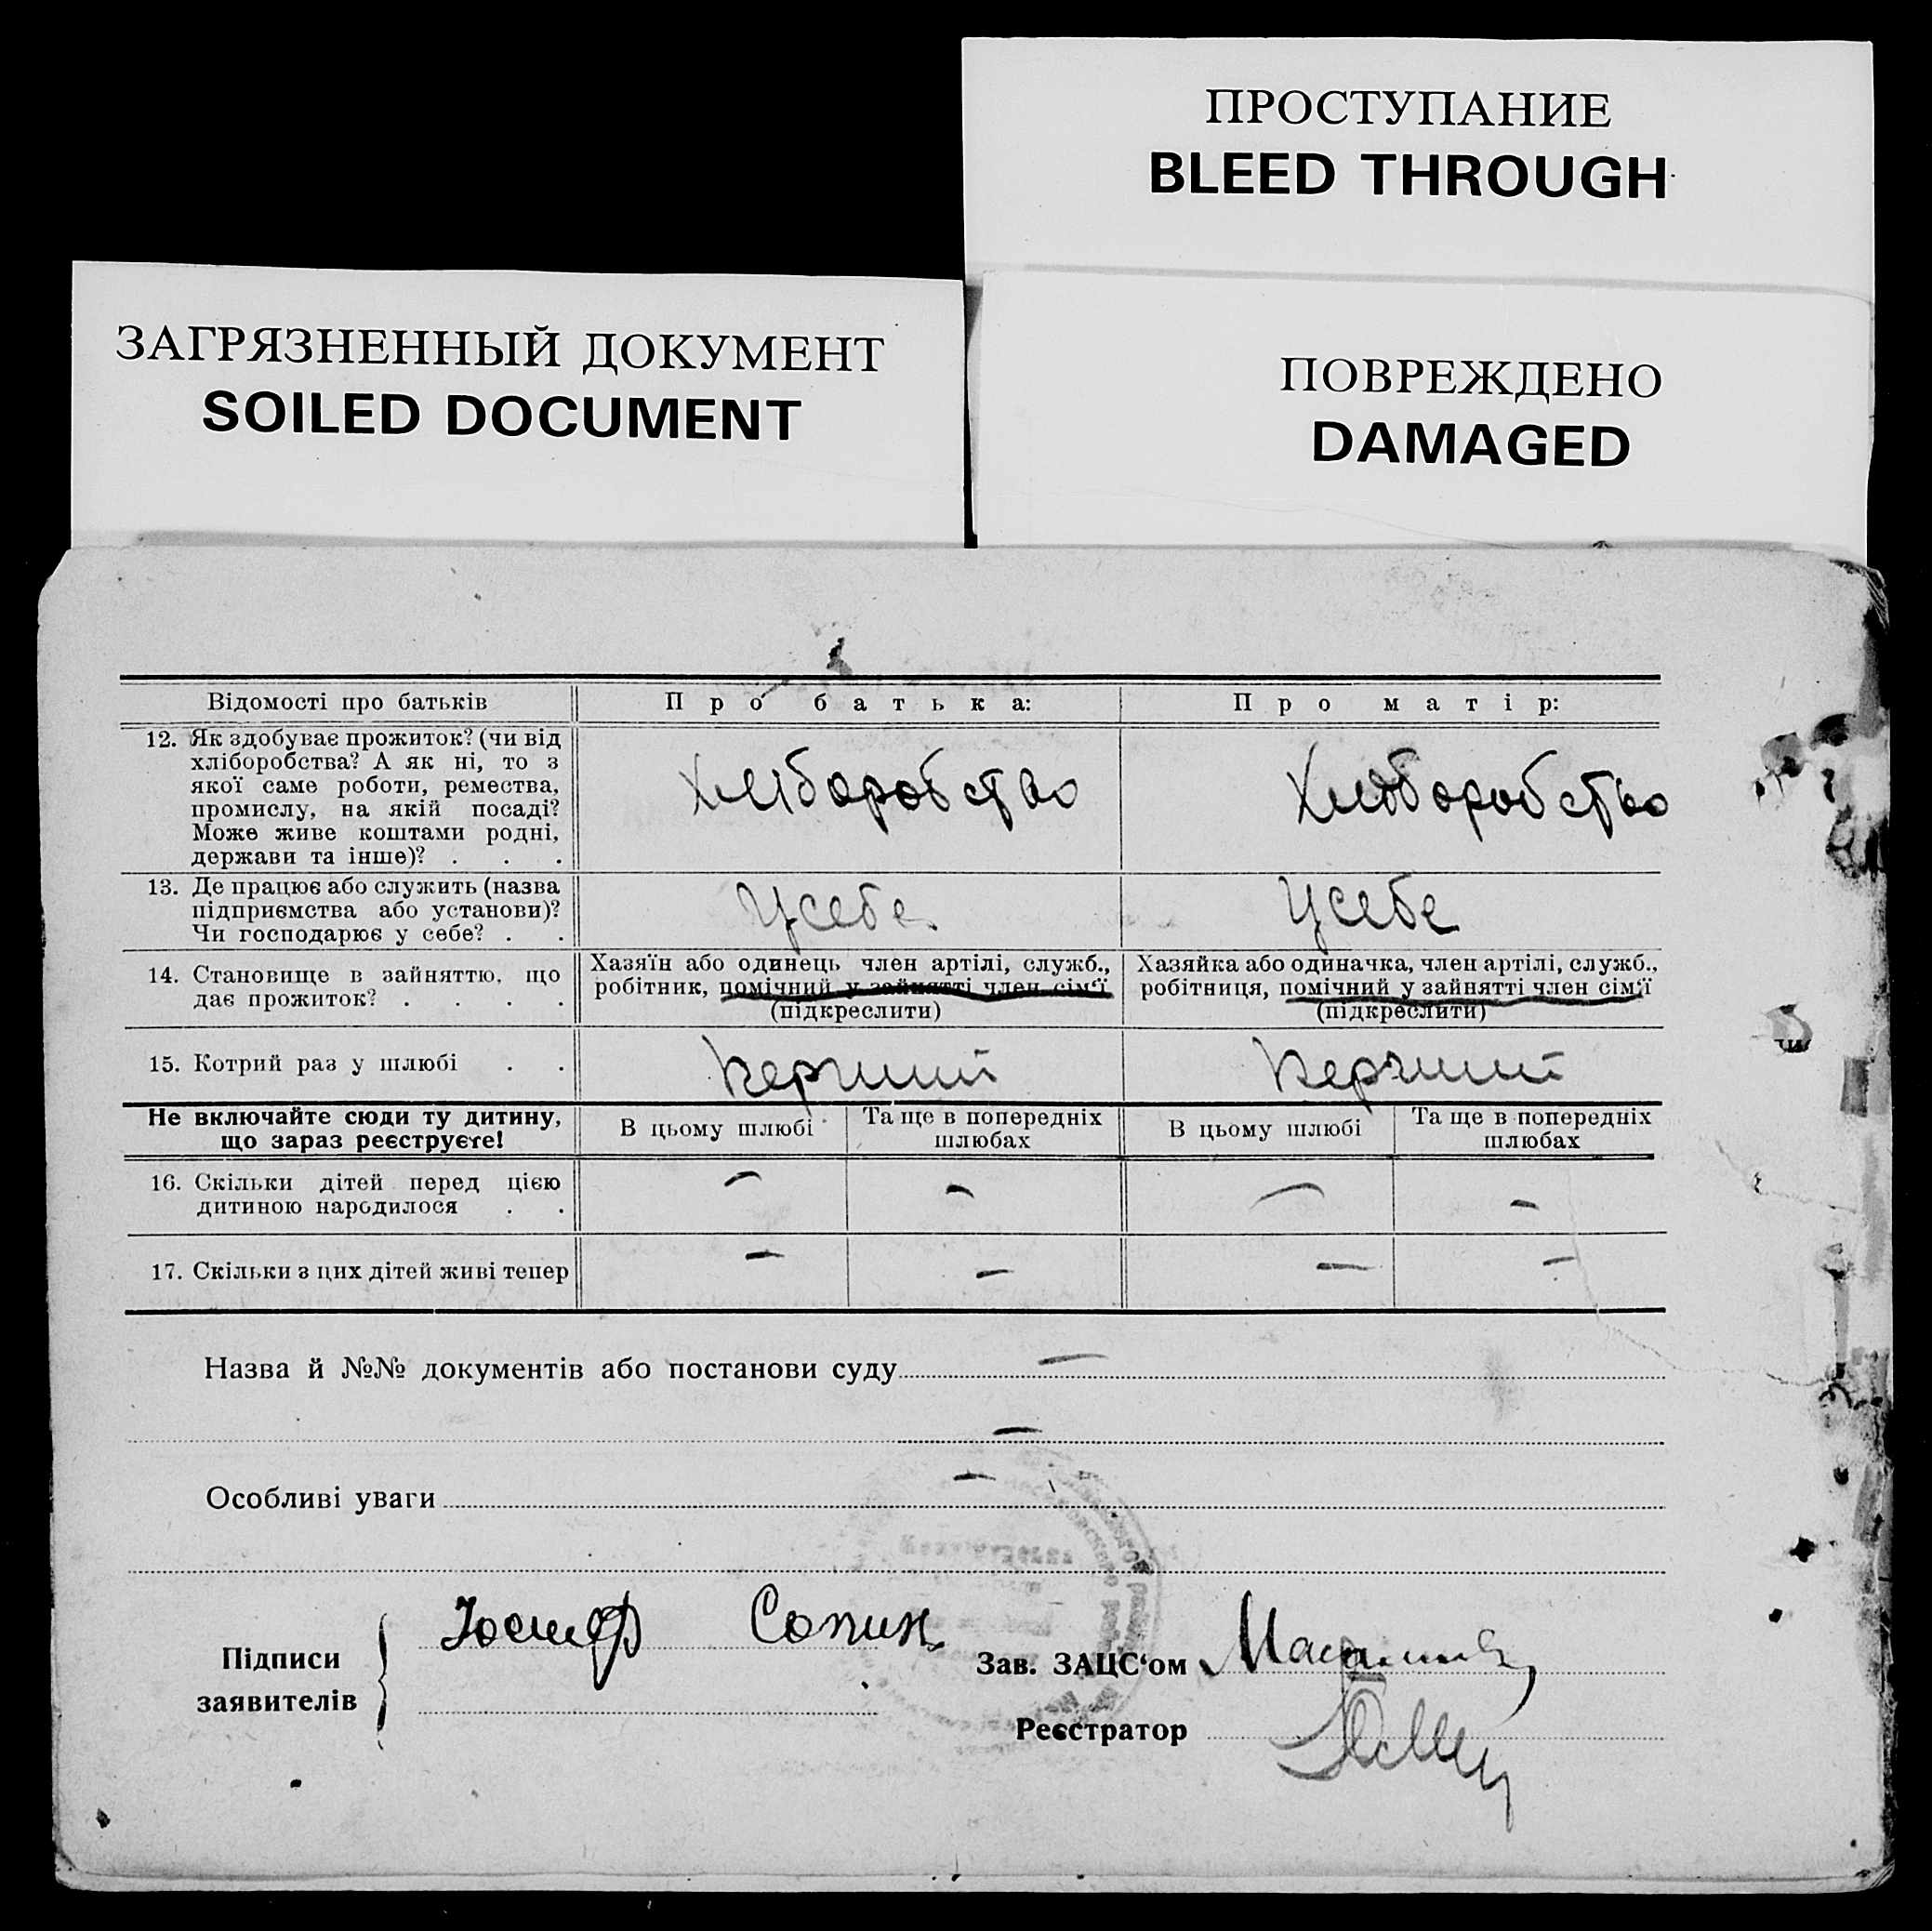 ПРОСТУПАНИЕ
BLEED THROUGH
ЗАГРЯЗНЕННЫЙ ДОКУМЕНТ
SOILED DOCUMENT
ПОВРЕЖДЕНО
DAMAGED
Відомості про батьків
Про батька:
Про матір:
12. Як здобуває прожиток? (чи від
хліборобства? А як ні, то з
якої саме роботи, ремества,
промислу, на якій посаді?
Може живе коштами родні,
держави та інше)? . . .
Хліборобство
Хліборобство
13. Де працює або служить (назва
підприємства або установи)?
Чи господарює у себе? . .
Усебе
Усебе
14. Становище в зайняттю, що
дає прожиток? . . . .
Хазяїн або одинець член артілі, служб.,
робітник, помічний у зайнятті член сім'ї
(підкреслити)
Хазяйка або одиначка, член артілі, служб.,
робітниця, помічний у зайнятті член сім'ї
(підкреслити)
15. Котрий раз у шлюбі . .
Перший
Перший
Не включайте сюди ту дитину,
що зараз реєструєте!
В цьому шлюбі
Та ще в попередніх
шлюбах
В цьому шлюбі
Та ще в попередніх
шлюбах
16. Скільки дітей перед цією
дитиною народилося . .
— — — —
17. Скільки з цих дітей живі тепер
— — — —
Назва й №№ документів або постанови суду —
—
Особливі уваги —
Підписи
заявителів
Юсиф Сопин
Зав. ЗАЦС‘ом
Реєстратор